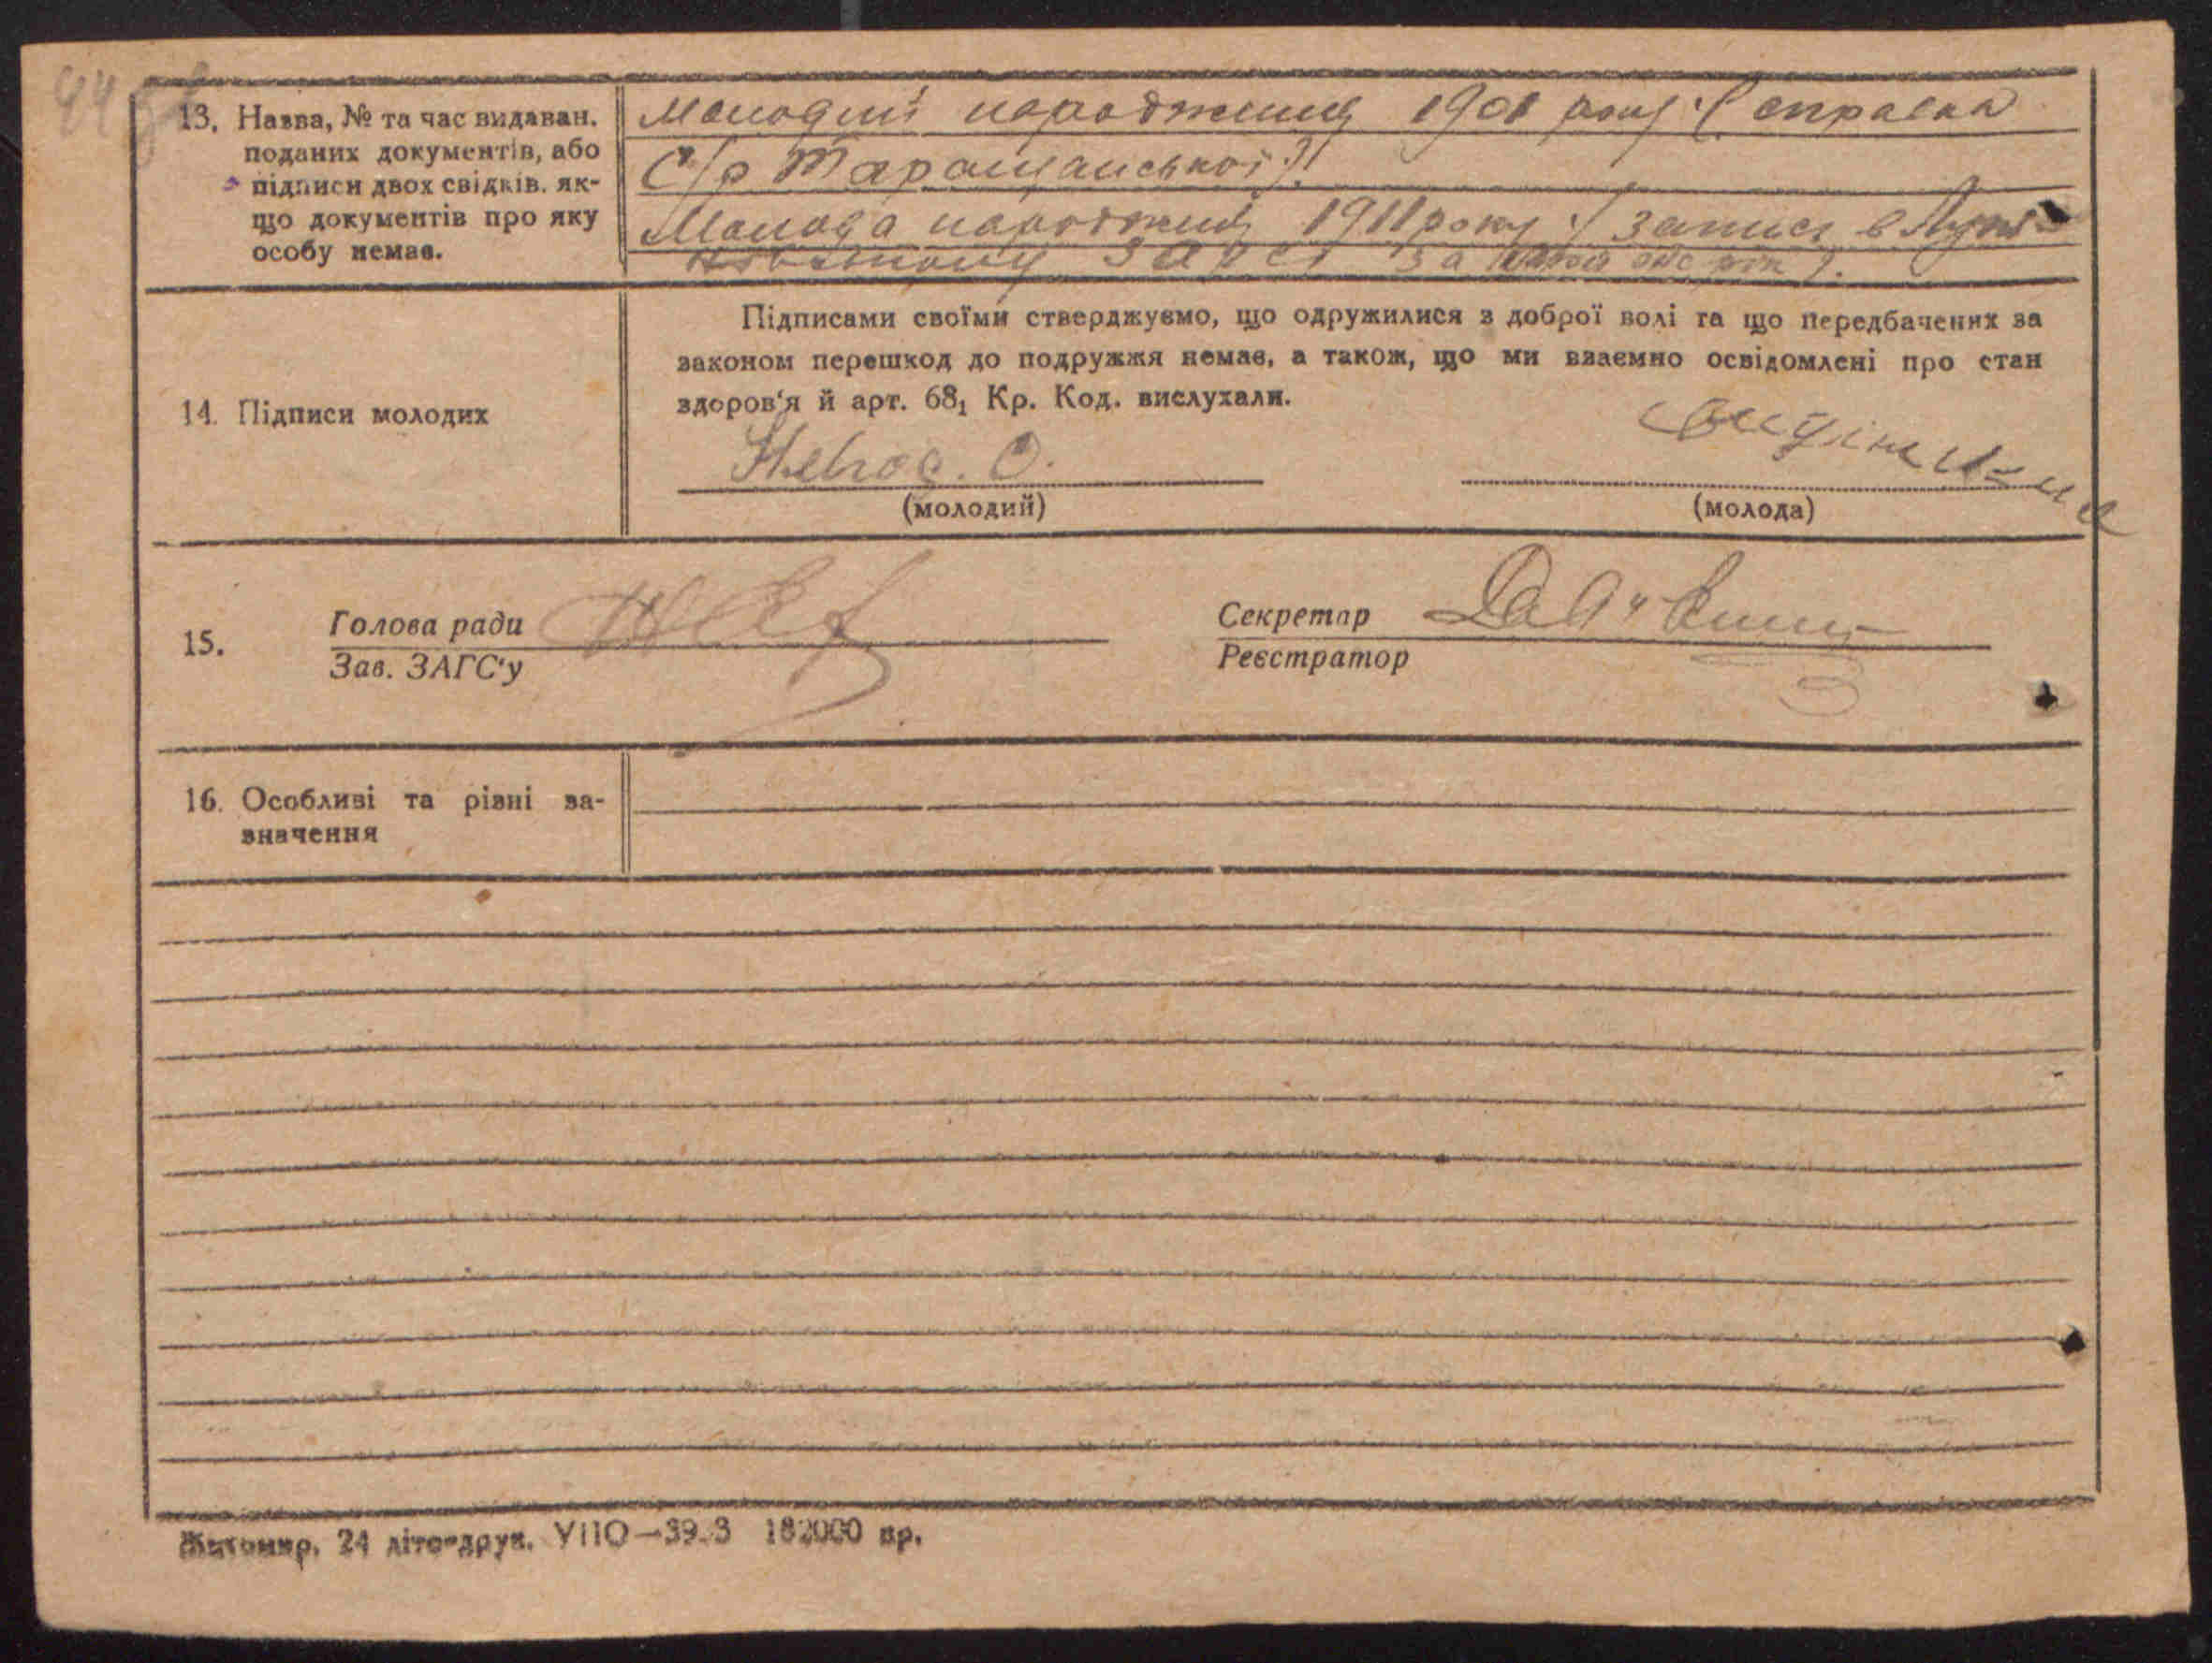 44
13. Назва, № та час видаван.
поданих документів, або
підписи двох свідків, як-
що документів про яку
особу немає.
Молодий народження 1901 року (справка
С/р Таращанської).
Молода народжен 1911 року (запис в
ЗАГСі за
14. Підписи молодих
Підписами своїми стверджуємо, що одружилися з доброї волі та що передбачених за
законом перешкод до подружжя немає, а також, що ми взаємно освідомлені про стан
здоров'я й арт. 68₁ Кр. Код. вислухали.
О.
(молодий)
(молода)
15.
Голова ради
Зав. ЗАГС'у
Секретар
Реєстратор
16. Особливі та різні за-
значення
Житомир, 24 літо-друк. УПО—39.3 182000 пр.